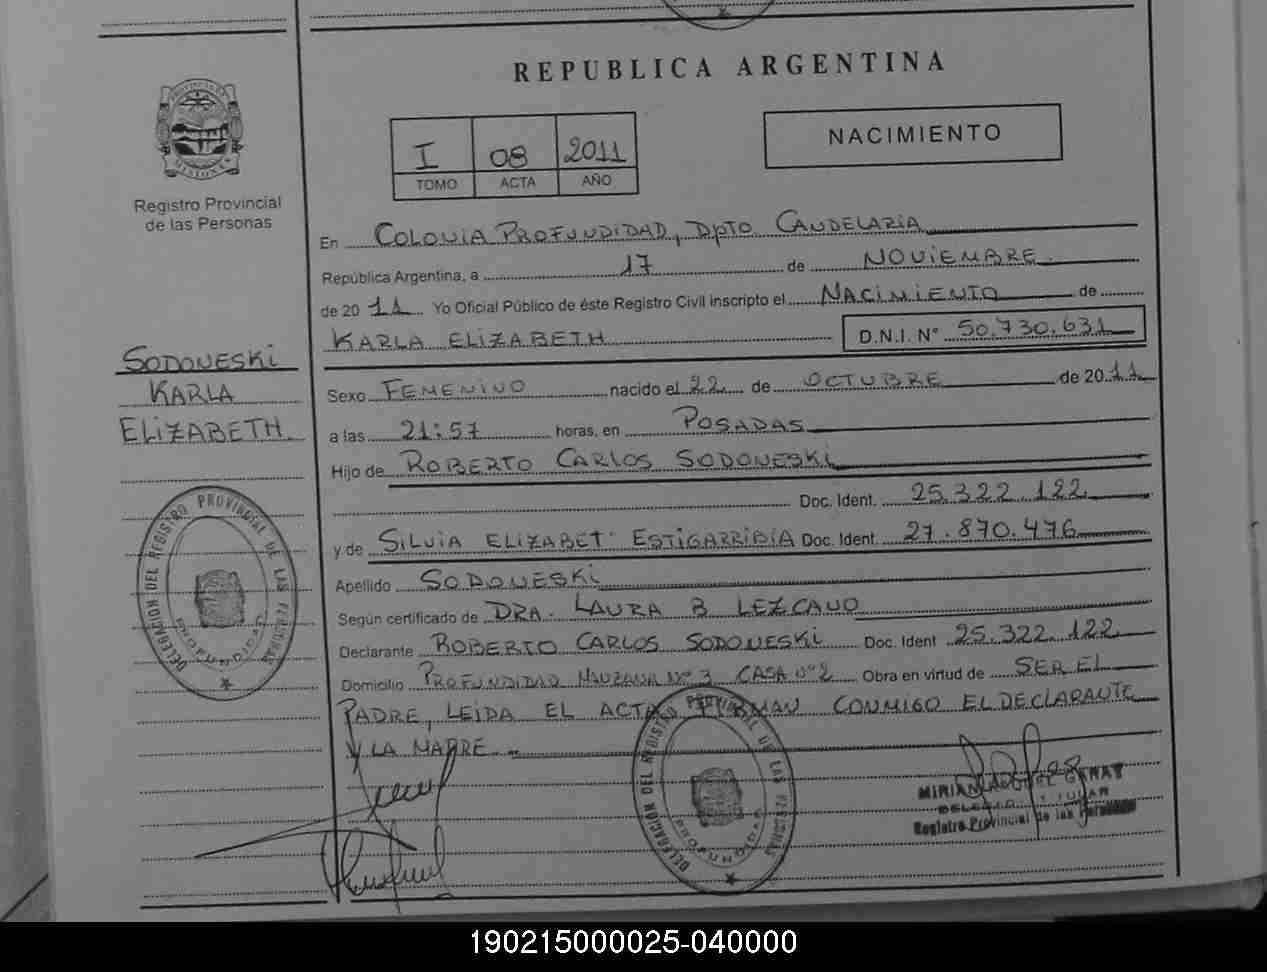 REPUBLICA ARGENTINA
PROVINCIA DE
MISIONES
Registro Provincial
de las Personas
I 08 2011
TOMO ACTA AÑO
NACIMIENTO
En COLONIA PROFUNDIDAD, DPTO CANDELARIA
República Argentina, a 17 de NOVIEMBRE
de 2011 Yo Oficial Público de éste Registro Civil inscripto el NACIMIENTO de
KARLA ELIZABETH D.N.I. N° 50.730.631
SODONESKI
KARLA
ELIZABETH
Sexo FEMENINO nacido el 22 de OCTUBRE de 2011
a las 21:57 horas, en POSADAS
Hijo de ROBERTO CARLOS SODONESKI
Doc. Ident. 25.322.122
y de SILVIA ELIZABET ESTIGARRIBIA Doc. Ident. 27.870.476
Apellido SODONESKI
Según certificado de DRA. LAURA B LEZCANO
Declarante ROBERTO CARLOS SODONESKI Doc. Ident 25.322.122
Domicilio PROFUNDIDAD MANZANA N° 3 CASA N° 2 Obra en virtud de SER EL
PADRE, LEIDA EL ACTA FIRMAN CONMIGO EL DECLARANTE
Y LA MADRE
DELEGACION DEL REGISTRO PROVINCIAL DE LAS PERSONAS
PROFUNDIDAD
DELEGACION DEL REGISTRO PROVINCIAL DE LAS PERSONAS
PROFUNDIDAD
MIRIAN
Registro Provincial de las Personas
190215000025-040000